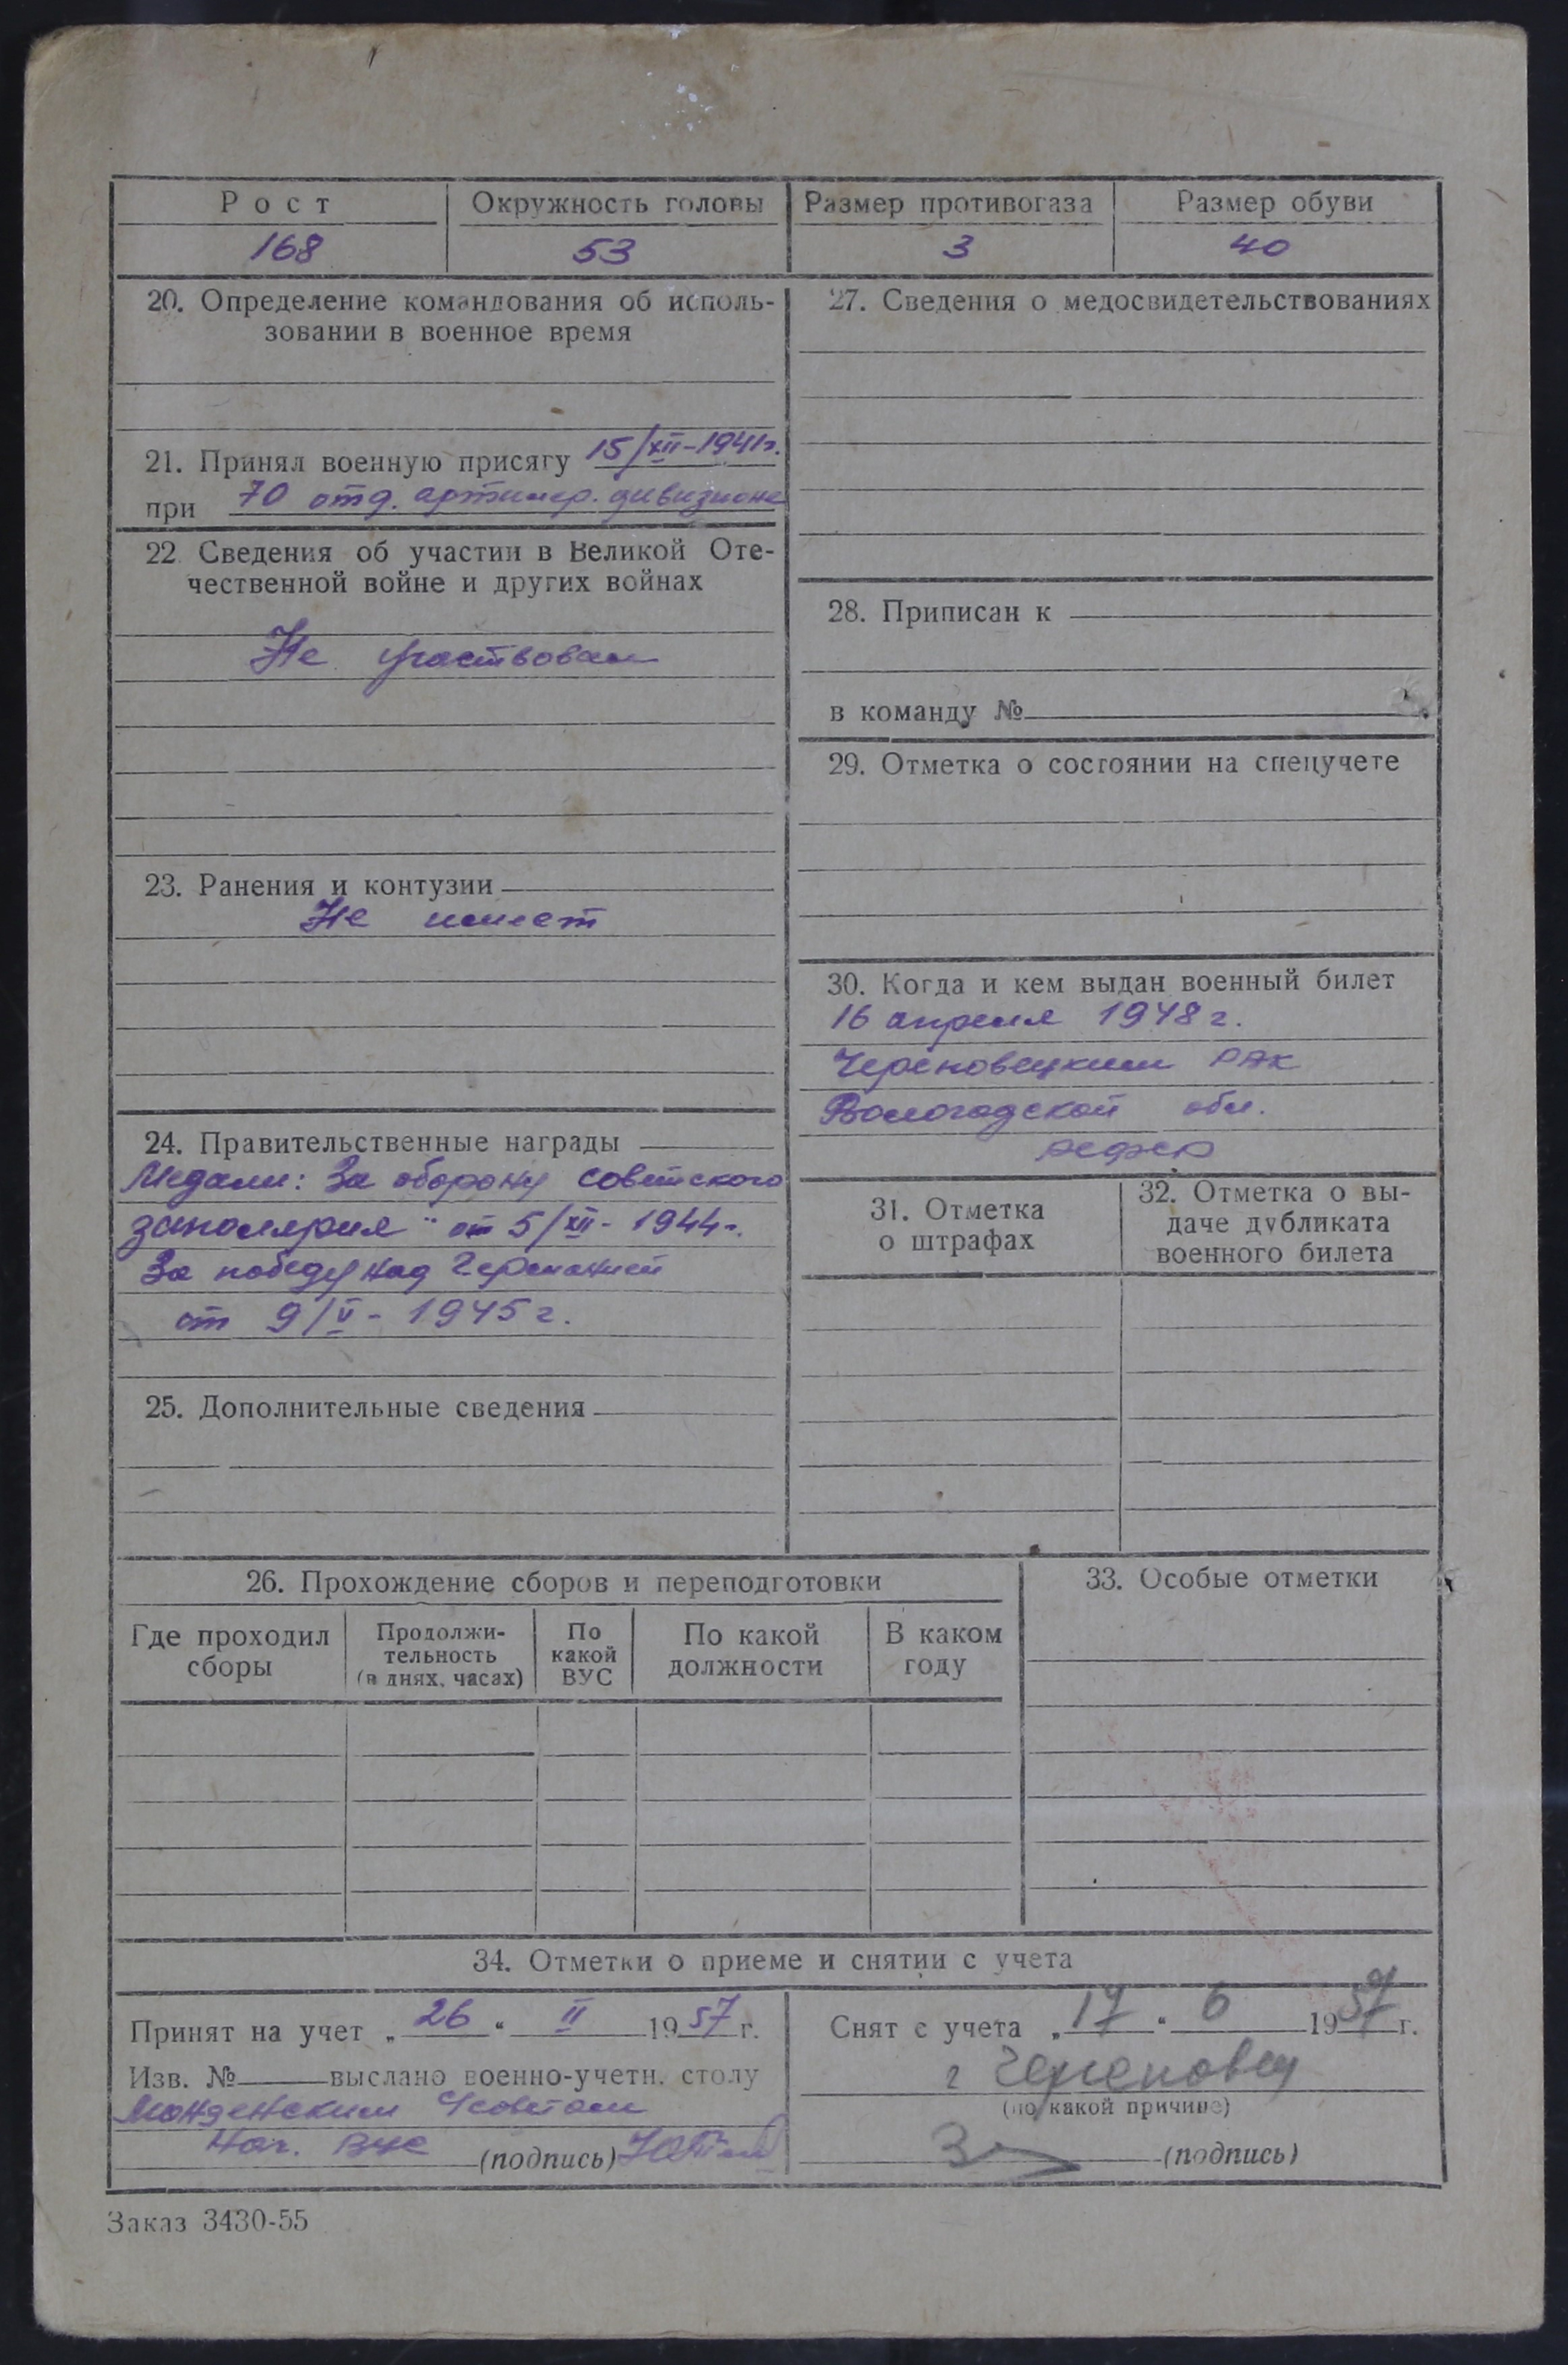 Рост
Окружность головы
Размер противогаза
Размер обуви
168
53
3
40
20. Определение командования об исполь-
зовании в военное время
21. Принял военную присягу 15/XII-1941г.
при 70 отд. артиллер. дивизионе
22 Сведения об участии в Великой Оте-
чественной войне и других войнах
Не участвовал
23. Ранения и контузии
Не имеет
24. Правительственные награды
Медали: За оборону советского
заполярия" от 5/XII-1944г.
За победу над Германией
от 9/V-1945г.
25. Дополнительные сведения
27. Сведения о медосвидетельствованиях
28. Приписан к
в команду №
29. Отметка о состоянии на спецучете
30. Когда и кем выдан военный билет
16 апреля 1948 г.
Череповецким РВК
Вологодской обл.
31. Отметка
о штрафах
32. Отметка о вы-
даче дубликата
военного билета
26. Прохождение сборов и переподготовки
Где проходил
сборы
Продолжи-
тельность
(в днях, часах)
По
какой
ВУС
По какой
должности
В каком
году
33. Особые отметки
34. Отметки о приеме и снятии с учета
Принят на учет „26" II 1957 г.
Изв. № выслано военно-учетн. столу
Нач. ВУС (подпись)
Снят с учета „17" 6 1957 г.
г Череповец
(по какой причине)
(подпись)
Заказ 3430-55